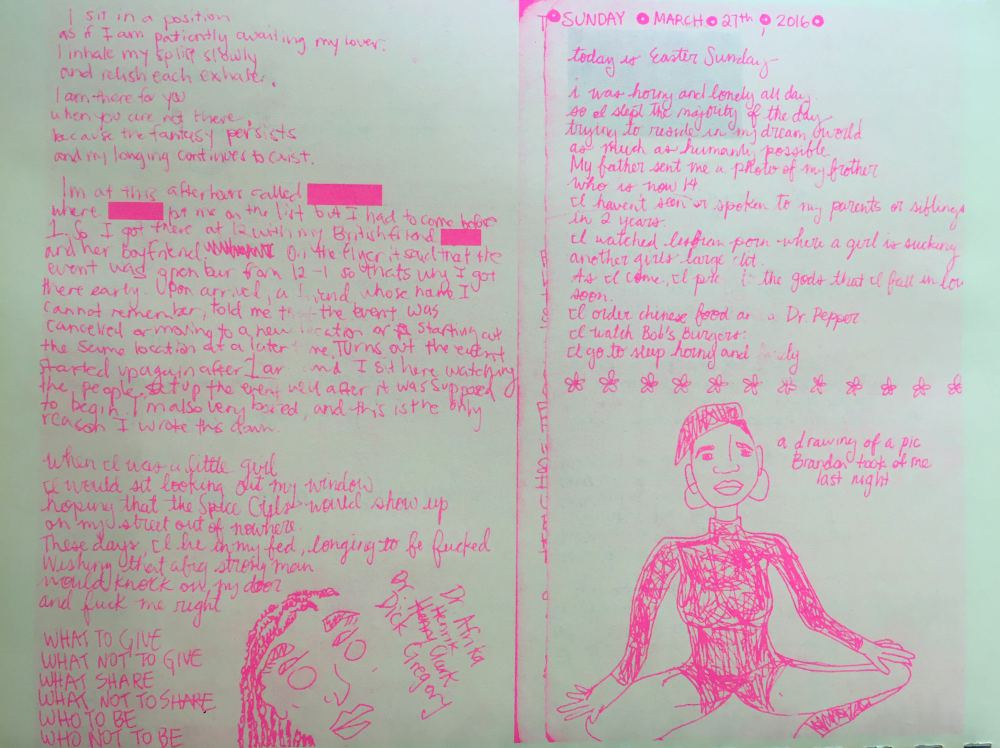 I sit in a position
as if I am patiently awaiting my lover.
I inhale my spliff slowly
and relish each exhale.
I am there for you
when you are not there,
because the fantasy persists
and my longing continues to exist.
Im at this afterhours called
where put me on the list but I had to come before
1. So I got there at 12 with my British friend
and her boyfriend. On the flyer it said that the
event was open bar from 12-1 so thats why I got
there early. Upon arrival, a friend whose name I
cannot remember, told me that the event was
cancelled or moving to a new location or starting at
the same location at a later time. Turns out the event
started up again after 1 am and I sit here watching
the people set up the event well after it was supposed
to begin. I'm also very bored, and this is the only
reason I wrote this down.
When I was a little girl
I would sit looking out my window
hoping that the Spice Girls would show up
on my street out of nowhere.
These days, I lie in my bed, longing to be fucked
Wishing that a big strong man
would knock on my door
and fuck me right
WHAT TO GIVE
WHAT NOT TO GIVE
WHAT SHARE
WHAT NOT TO SHARE
WHO TO BE
WHO NOT TO BE
Dr. Afrika
Dr. Henrik Clark
Dick Gregory
SUNDAY MARCH 27th, 2016
today is Easter Sunday-
i was horny and lonely all day
so I slept the majority of the day
trying to reside in my dream world
as much as humanly possible
My father sent me a photo of my brother
who is now 14.
I haven't seen or spoken to my parents or siblings
in 2 years.
I watched lesbian porn where a girl is sucking
another girls large clit.
As I come, I pray to the gods that I fall in love
soon.
I order chinese food and a Dr. Pepper
I watch Bob's Burgers.
I go to sleep horny and lonely
a drawing of a pic
Brandon took of me
last night